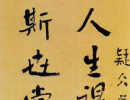 疑仌
人生得
斯世當